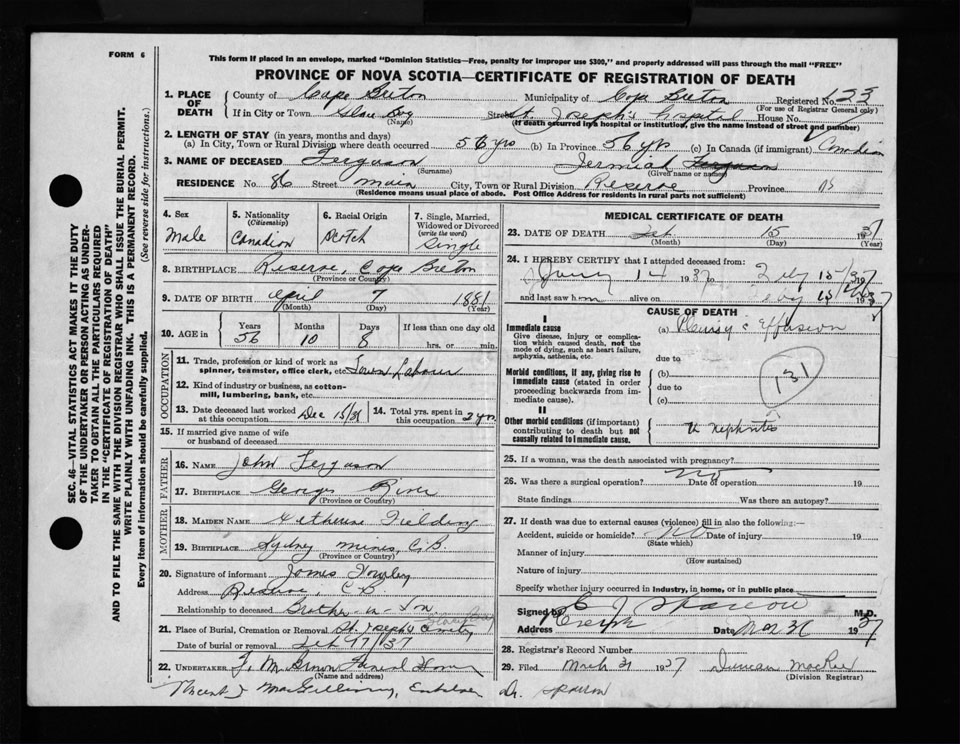 FORM 6
This form if placed in an envelope, marked "Dominion Statistics—Free, penalty for improper use $300," and properly addressed will pass through the mail "FREE"
PROVINCE OF NOVA SCOTIA—CERTIFICATE OF REGISTRATION OF DEATH
1. PLACE OF DEATH County of Cape Breton Municipality of Cape Breton Registered No. 133
(For use of Registrar General only)
If in City or Town Glace Bay (Name) Street St. Joseph's Hospital House No.
(If death occurred in a hospital or institution, give the name instead of street and number)
2. LENGTH OF STAY (in years, months and days)
(a) In City, Town or Rural Division where death occurred 56 yrs (b) In Province 56 yrs (c) In Canada (if immigrant) Canadian
3. NAME OF DECEASED Ferguson (Surname) Jermiah Ferguson (Given name or names)
RESIDENCE No. 86 Street Main City, Town or Rural Division Reserve Province NS
(Residence means usual place of abode. Post Office Address for residents in rural parts not sufficient)
4. Sex Male
5. Nationality (Citizenship) Canadian
6. Racial Origin Scotch
7. Single, Married, Widowed or Divorced (write the word) Single
8. BIRTHPLACE Reserve, Cape Breton
(Province or Country)
9. DATE OF BIRTH April 7 1881
(Month) (Day) (Year)
10. AGE in Years 56 Months 10 Days 8 If less than one day old hrs. or min.
OCCUPATION
11. Trade, profession or kind of work as spinner, teamster, office clerk, etc. Town Labour
12. Kind of industry or business, as cotton-mill, lumbering, bank, etc.
13. Date deceased last worked at this occupation Dec 15/36 14. Total yrs. spent in this occupation 2 yrs
15. If married give name of wife or husband of deceased
FATHER
16. NAME John Ferguson
17. BIRTHPLACE Georges River
(Province or Country)
MOTHER
18. MAIDEN NAME Katherine Fielding
19. BIRTHPLACE Sydney Mines, C.B.
(Province or Country)
20. Signature of informant James
Address Reserve, C.B.
Relationship to deceased Brother-in-
21. Place of Burial, Cremation or Removal St. Joseph's
Date of burial or removal 17/37
22. UNDERTAKER Funeral Home
(Name and address)
Vincent J MacGillivray,
MEDICAL CERTIFICATE OF DEATH
23. DATE OF DEATH Feb 15 1937
(Month) (Day) (Year)
24. I HEREBY CERTIFY that I attended deceased from:
14 1937 to 15 1937
and last saw him alive on 15 1937
CAUSE OF DEATH
I
Immediate cause
Give disease, injury or complication which caused death, not the mode of dying, such as heart failure, asphyxia, asthenia, etc.
(a) Pleurisy c Effusion
due to
Morbid conditions, if any, giving rise to immediate cause (stated in order proceeding backwards from immediate cause).
(b)
due to
(c)
131
II
Other morbid conditions (if important) contributing to death but not causally related to immediate cause.
nephritis
25. If a woman, was the death associated with pregnancy?
26. Was there a surgical operation? No Date of operation 19
State findings Was there an autopsy?
27. If death was due to external causes (violence) fill in also the following:—
Accident, suicide or homicide? No Date of injury 19
(State which)
Manner of injury
(How sustained)
Nature of injury
Specify whether injury occurred in industry, in home, or in public place
Signed by M.D.
Address Date Mar 31 1937
28. Registrar's Record Number
29. Filed March 31 1937 Duncan MacRae
(Division Registrar)
Dr. Sparrow
SEC. 46—VITAL STATISTICS ACT MAKES IT THE DUTY
OF THE UNDERTAKER OR PERSON ACTING AS UNDER-
TAKER TO OBTAIN ALL THE PARTICULARS REQUIRED
IN THE "CERTIFICATE OF REGISTRATION OF DEATH"
AND TO FILE THE SAME WITH THE DIVISION REGISTRAR WHO SHALL ISSUE THE BURIAL PERMIT.
WRITE PLAINLY WITH UNFADING INK. THIS IS A PERMANENT RECORD.
Every item of information should be carefully supplied. (See reverse side for instructions.)